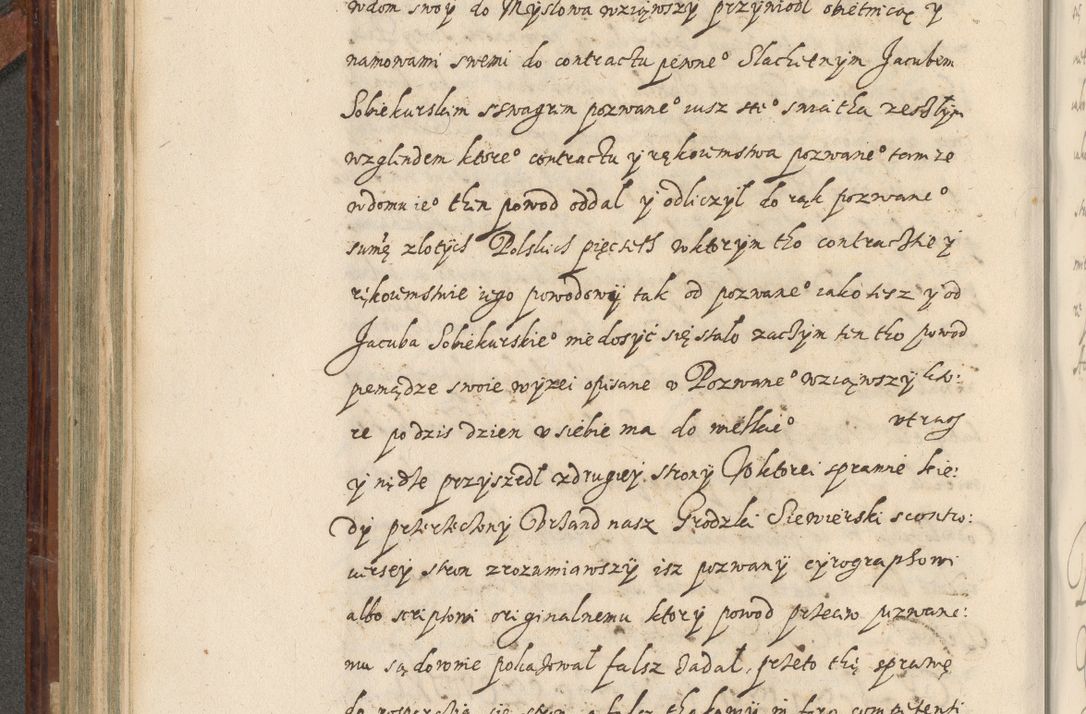 wdom swoy do Myslowa wziąwszy przyniodł obietnicą y
namowami swemi do contractu pewne° Slachetnym Jacubem
Sobiekurskim szwagrem pozwane° iusz ste° swiatha zeszłym
wzglendem ktore° contractu y rękoiemstwa pozwane° tamze
wdomu ie° then powod oddal y odliczył do rąk pozwane°
sumę złotych Polskich pięcset w ktorym tho contrackcie y
rękoiemstwie iego powodowy tak od pozwane° iako tesz y od
Jacuba Sobiekurskie° nie dosyć się stało zaczym ten tho powod
pieniądze swoie wyzei opisane v Pozwane° wziąwszy kto:
re po dzis dzien v siebie ma do wielkie°
y nędze przyszedł z drugiey strony W ktorei sprawie kie:
dy przerzeczony Vrzand nasz Grodzki Siewierski scontro:
uersey stron zrozumiawszy isz pozwany cyrographowi
albo scriptowi originalnemu ktory powod przeciw pozwane:
mu sądownie pokazował falsz zadał, przeto thę sprawę
do rosparcia się stron o falsz thakowy in foro competenti